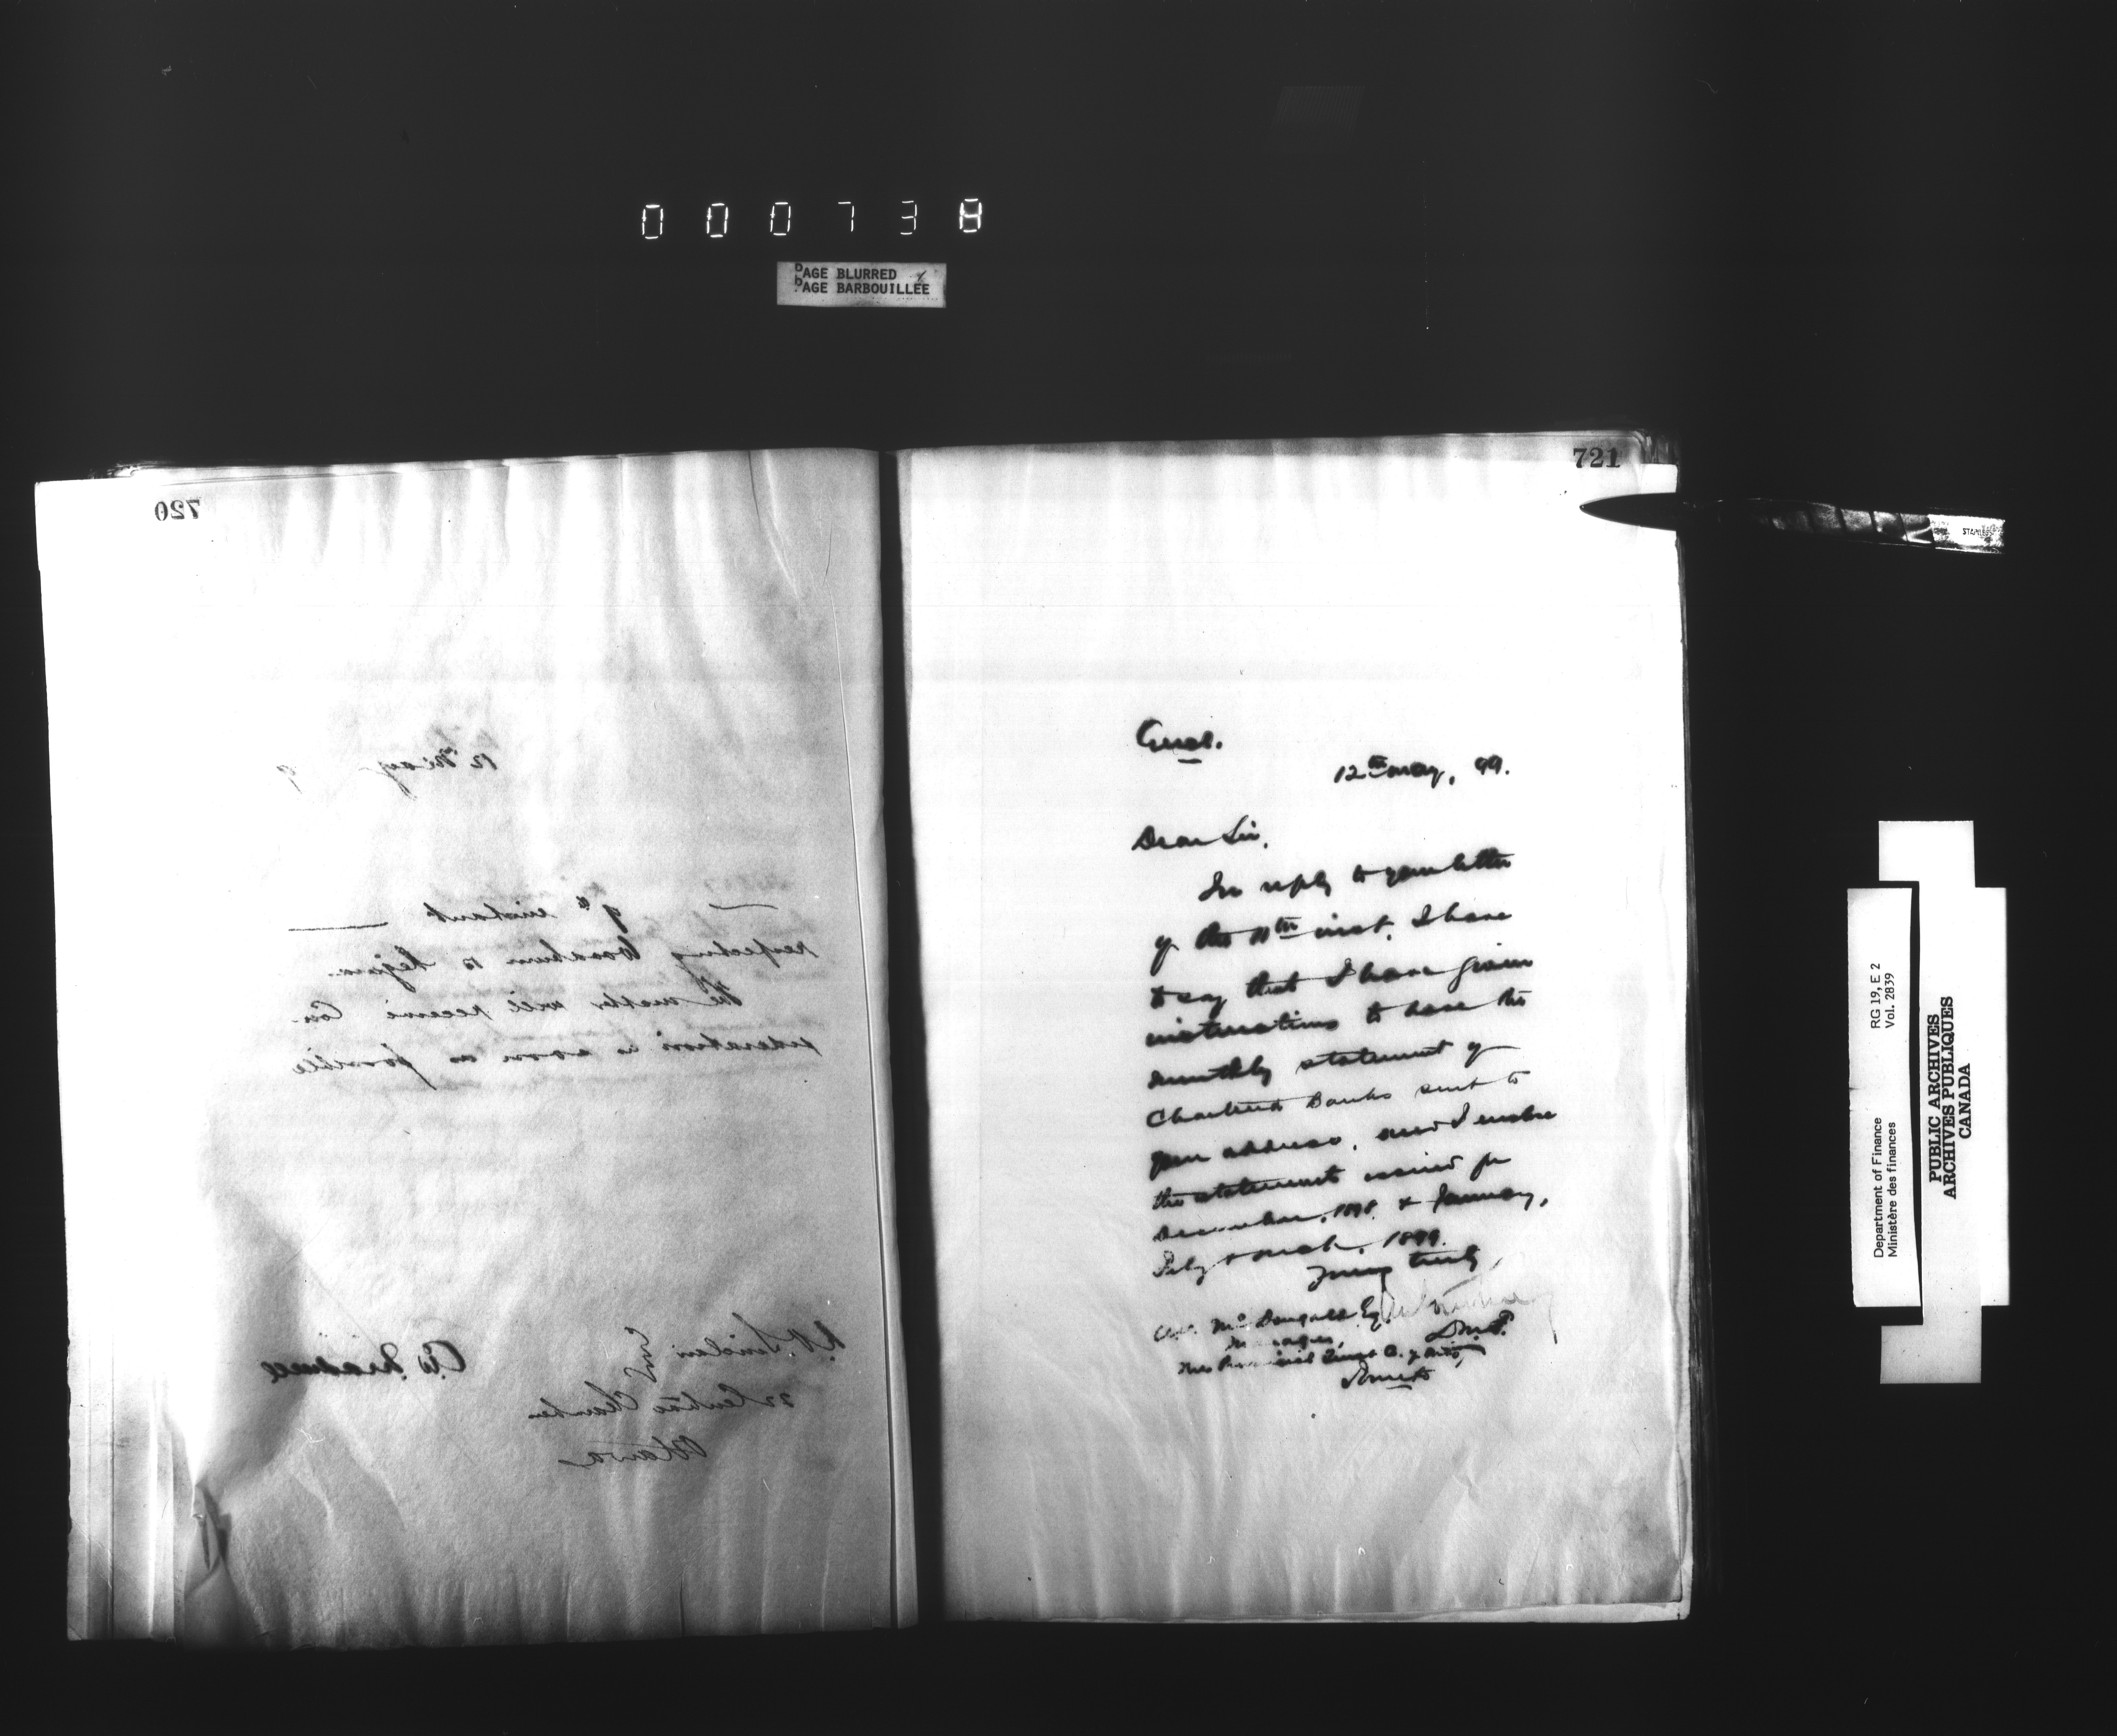 000738
PAGE BLURRED
PAGE BARBOUILLEE
720
12 May 9
9th instant
respecting Woodburn to Regina.
The matter will receive Con-
sideration as soon as possible
R.A. Sinclair
Esq
22 Central Chamber
Ottawa
721
Encl.
12th May, 99.
Dear Sir,
In reply to your letter
of the 11th inst. I have
to say that I have given
instructions to have the
monthly statement of
Chartered Banks sent to
your address, and I enclose
the statements issued for
December, 1898 & January,
Feby & March, 1899.
Yours truly
McDougald Esq
Manager,
The Provincial Trust Co. of Ont.,
Toronto
D.M.F.
STAINLESS
Department of Finance
Ministère des finances
RG 19, E 2
Vol. 2839
PUBLIC ARCHIVES
ARCHIVES PUBLIQUES
CANADA